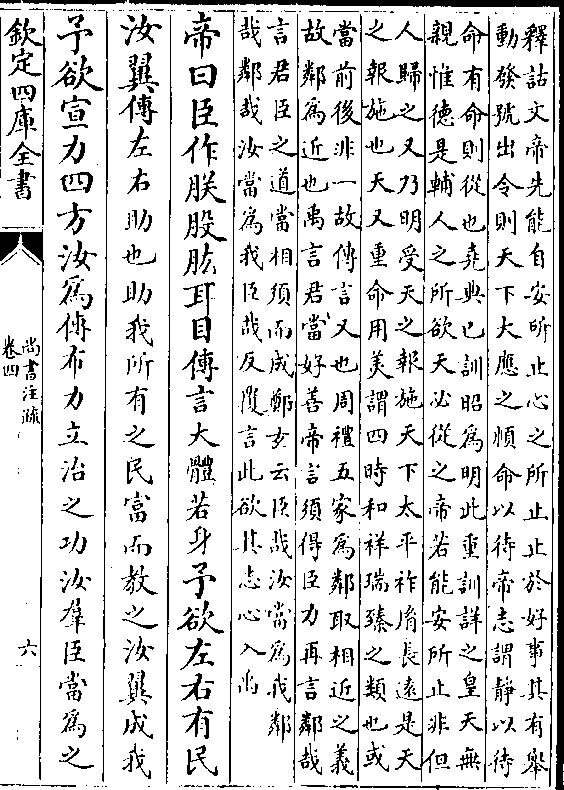 釋詁文帝先能自安所止心之所止止於好事其有舉
動發號出令則天下大應之順命以待帝志謂靜以待
命有命則從也堯典已訓昭爲明此重訓詳之皇天無
親惟德是輔人之所欲天必從之帝若能安所止非但
人歸之又乃明受天之報施天下太平祚胤長遠是天
之報施也天又重命用美謂四時和祥瑞臻之類也或
當前後非一故傳言又也周禮五家爲鄰取相近之義
故鄰爲近也禹言君當好善帝言須得臣力再言鄰哉
言君臣之道當相須而成鄭玄云臣哉汝當爲我鄰
哉鄰哉汝當爲我臣哉反覆言此欲其志心入禹
帝曰臣作朕股肱耳目傳言大體若身予欲左右有民
汝翼傳左右助也助我所有之民富而教之汝翼成我
予欲宣力四方汝爲傳布力立治之功汝羣臣當爲之
欽定四庫全書
尚書注疏
卷四
六